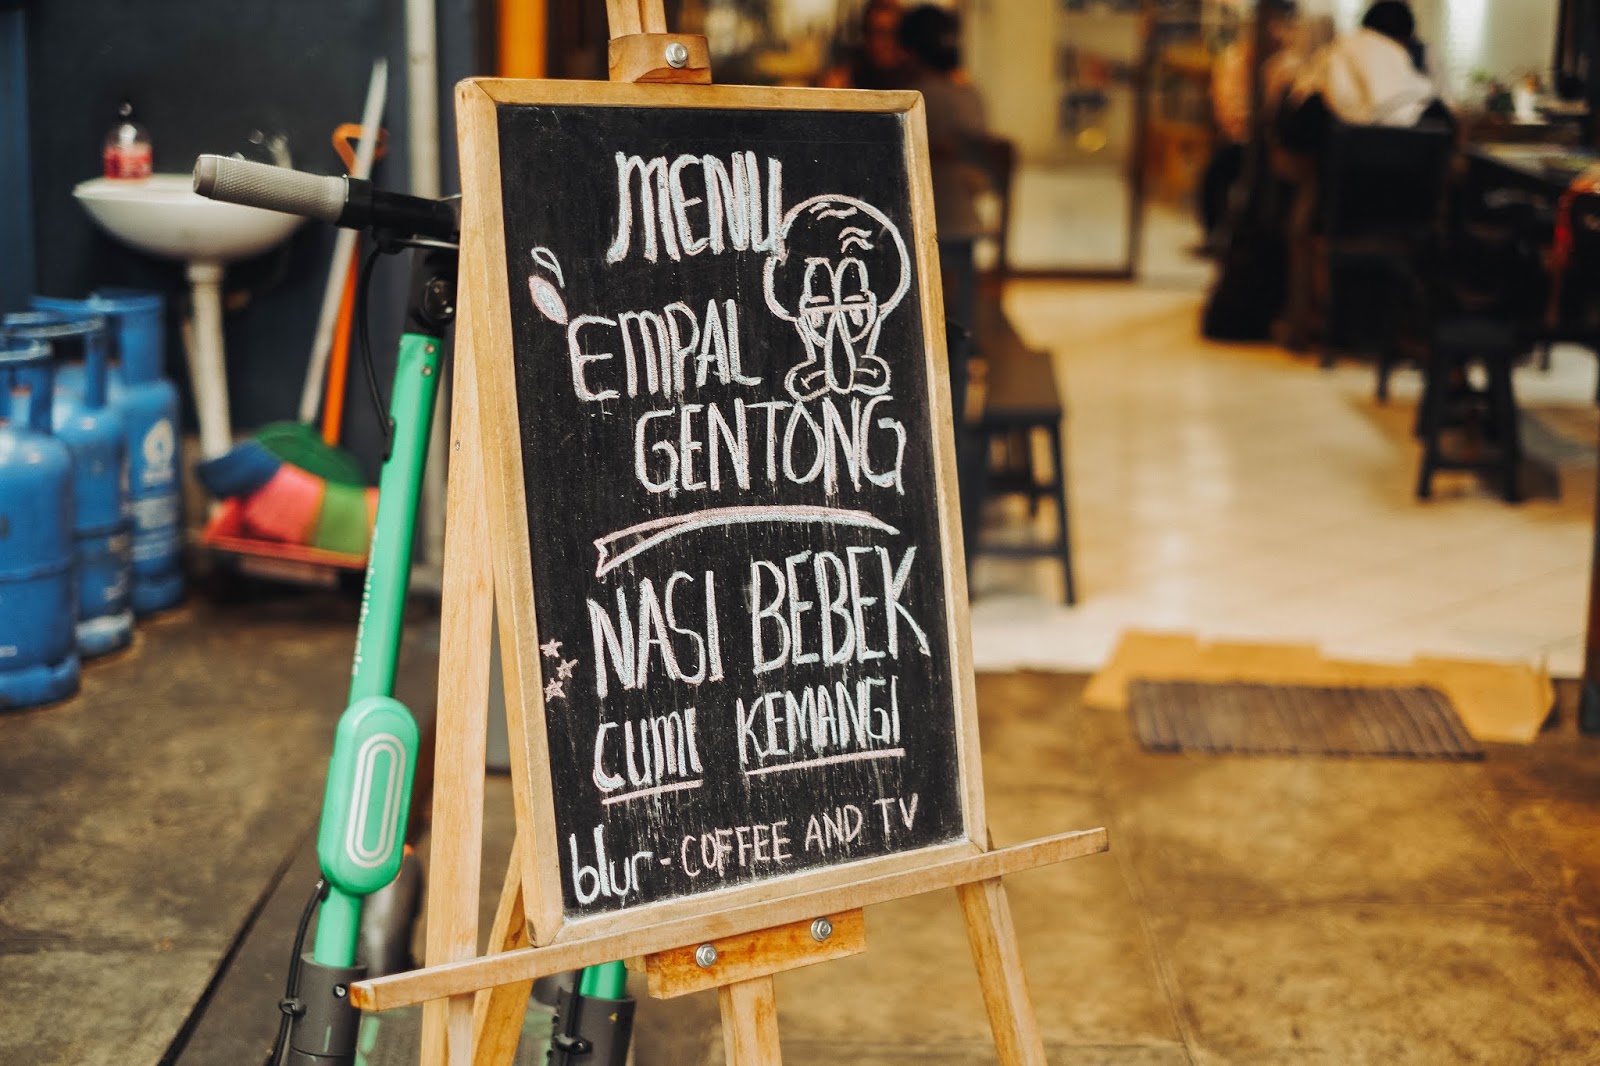 MENU
EMPAL
GENTONG
NASI BEBEK
CUMI KEMANGI
blur - COFFEE AND TV